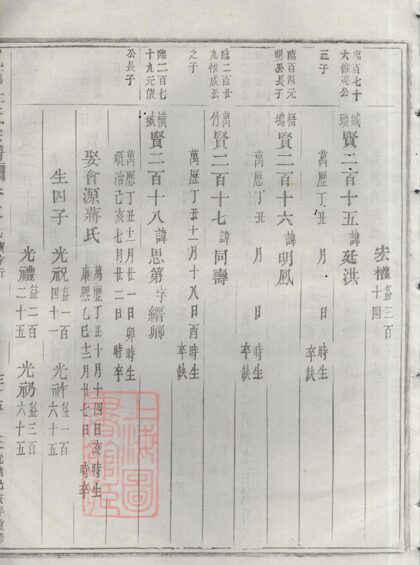 宏權 益三百十四
三子
城頭 賢二百十五 諱廷洪
萬歷丁丑 月 日 時生卒缺
臨百四元明公長子
梧塢 賢二百十六 諱明鳳
萬歷丁丑 月 日 時生卒缺
之子
橫竹 賢二百十七 諱同壽
萬歷丁丑十一月十八日酉時生卒缺
臨二百七十九元儀公長子
橫城 賢二百十八 諱思第 字縉卿
萬歷丁丑十一月廿一日卯時生
順治己亥七月廿二日 時卒
娶會源蔣氏
萬歷丁丑十月十四日亥時生
康熙乙巳十二月廿七日 時卒
生四子
光祝 益一百四十一
光祚 益一百六十五
光禮 益二百二十五
光礽 益三百六十五
上海圖書館